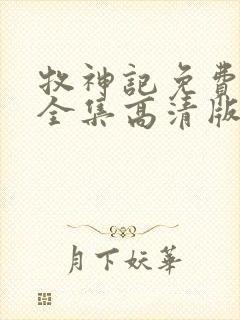 牧神記免費
全集高清版
月下妖華